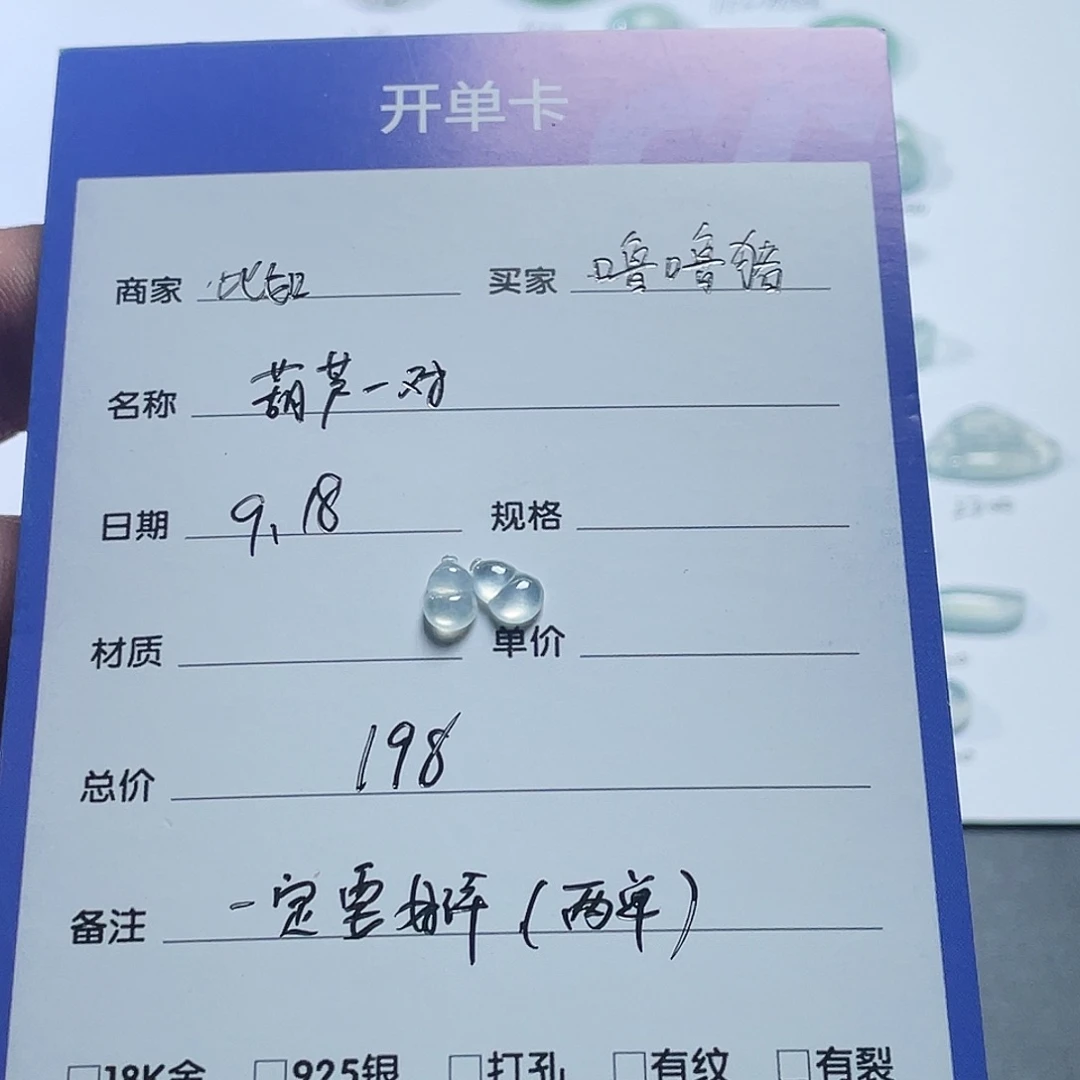 开单卡
商家 买家 噜噜猪
名称 葫芦一对
日期 9.18 规格
材质 单价
总价 198
备注 一定要（两单）
□18K金 □925银 □打孔 □有纹 □有裂